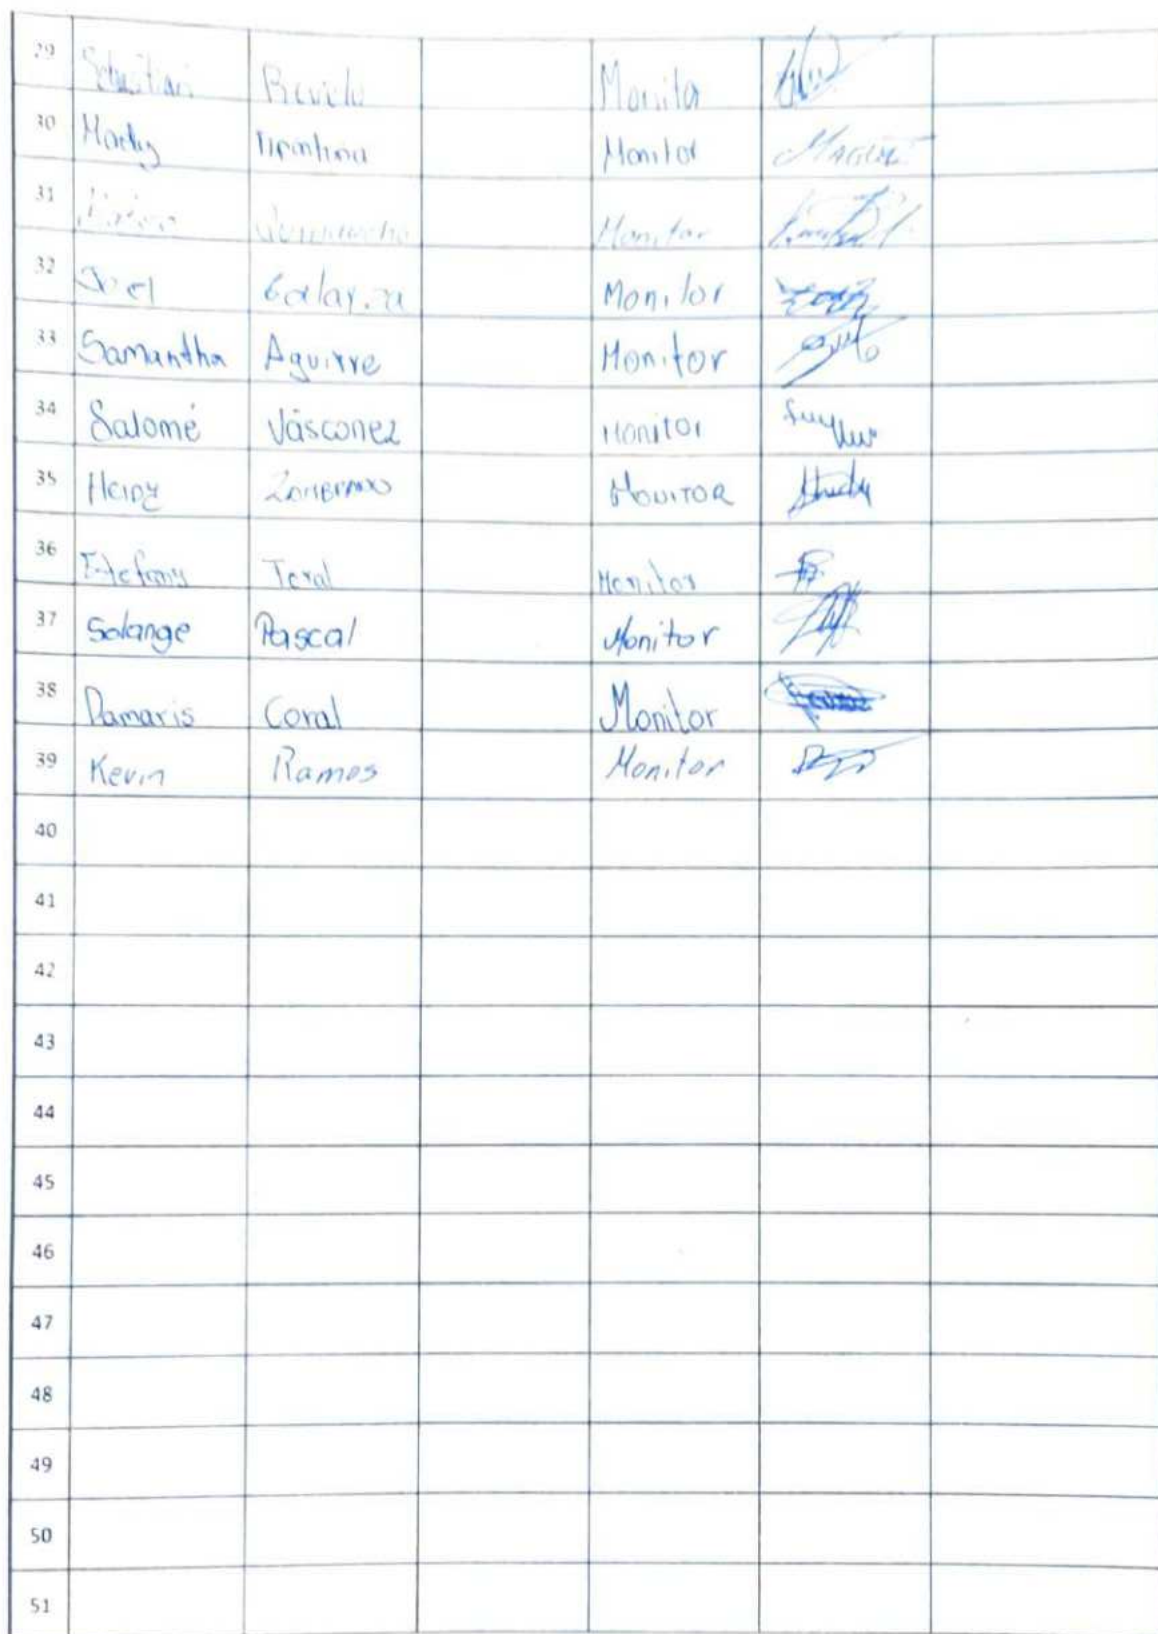 29 Sebastian Revelo Monitor
30 Monitor
31 Monitor
32 Joel Galarza Monitor
33 Samantha Aguirre Monitor
34 Salomé Vásconez Monitor
35 Heidy ZAMBRANO MONITOR
36 Estefany Toral Monitor
37 Solange Pascal Monitor
38 Damaris Coral Monitor
39 Kevin Ramos Monitor
40
41
42
43
44
45
46
47
48
49
50
51